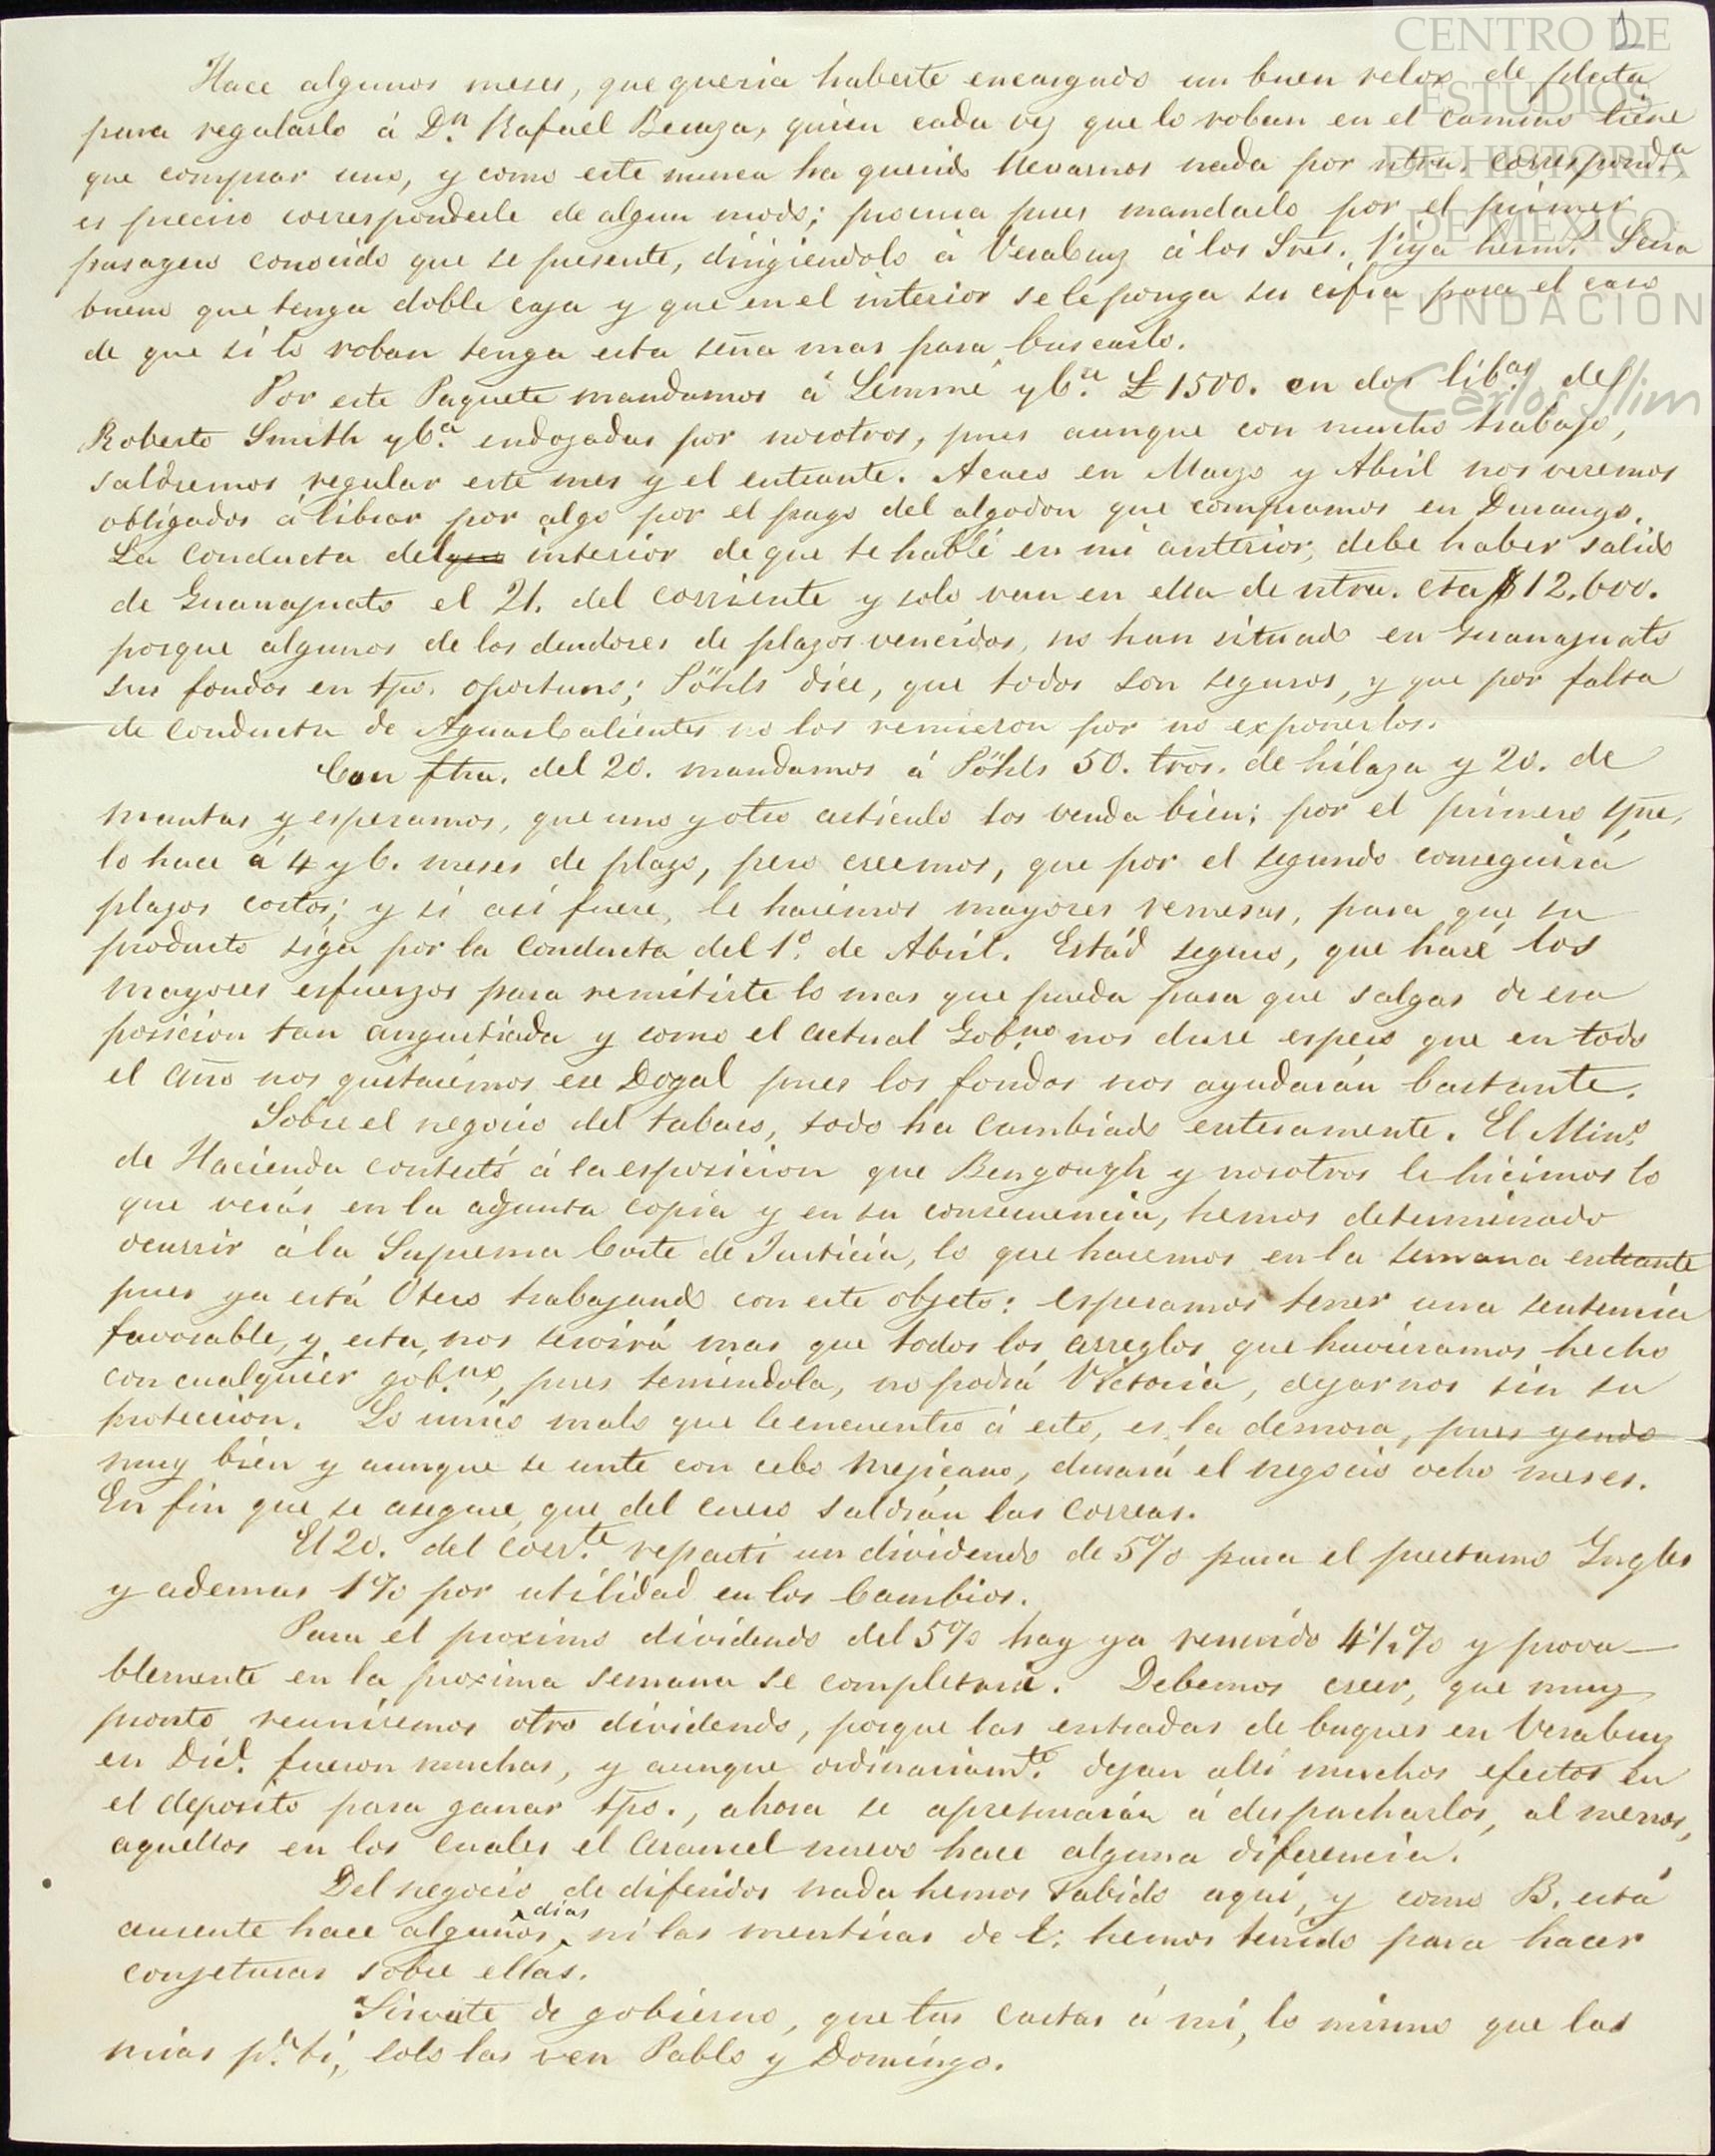 1
CENTRO DE
ESTUDIOS
DE HISTORIA
DE MEXICO
FUNDACIÓN
Carlos Slim
Hace algunos meses, que queria haberte encargado un buen relox de plata
para regalarlo á Dn. Rafael Beraza, quien cada vez que lo roban en el camino tiene
que comprar uno, y como este nunca ha querido llevarnos nada por ntra. correspond.a
es preciso corresponderle de algun modo; procura pues mandarlo por el primer
pasagero conocido que se presente, dirigiendolo á VeraCruz á los Sres. Viya herm.s Sera
bueno que tenga doble caja y que en el interior se le ponga su cifra para el caso
de que si lo roban tenga esta seña mas para buscarlo.
Por este Paquete mandamos á Lemmé y C.a £1500. en dos lib.as de
Roberto Smith y C.a endozadas por nosotros, pues aunque con mucho trabajo,
saldremos regular este mes y el entrante. Acaso en Marzo y Abril nos veremos
obligados á librar por algo por el pago del algodon que compramos en Durango.
La Conducta del que interior de que te hablé en mi anterior, debe haber salido
de Guanajuato el 21. del corriente y solo van en ella de ntra. cta $12.600.
porque algunos de los deudores de plazos vencidos, no han situado en Guanajuato
sus fondos en tpo. oportuno; Pöhls dice, que todos son seguros, y que por falta
de conducta de AguasCalientes no los remieron por no exponerlos.
Con fha. del 20. mandamos á Pöhls 50. tros. de hilaza y 20. de
mantas y esperamos, que uno y otro articulo los venda bien; por el primero spre.
lo hace á 4 y 6. meses de plazo, pero creemos, que por el segundo conseguirá
plazos cortos; y si asi fuere, le haremos mayores remesas, para que su
producto siga por la Conducta del 1º. de Abril. Estád seguro, que haré los
mayores esfuerzos para remitirte lo mas que pueda para que salgas de esa
posicion tan angustiada y como el actual Gob.no nos dure espero que en todo
el año nos quitarémos ese Dogal pues los fondos nos ayudarán bastante.
Sobre el negocio del tabaco, todo ha cambiado enteramente. El Min.o
de Hacienda contestó á la esposicion que Bengough y nosotros le hicimos lo
que verás en la adjunta copia y en su consecuencia, hemos determinado
ocurrir á la Suprema Corte de Justicia, lo que haremos en la semana entrante
pues ya está Otero trabajando con este objeto: esperamos tener una sentencia
favorable, y esta, nos servirá mas que todos los arreglos que huvieramos hecho
con cualquier gob.no, pues teniendola, no podrá Victoria, dejarnos sin su
proteccion. Lo unico malo que le encuentro á esto, es la demora, pues yendo
muy bien y aunque se unte con cebo Mejicano, durará el negocio ocho meses.
En fin que se asegure, que del cuero saldrán las correas.
El 20. del corr.te repartí un dividendo de 5% para el prestamo Ingles
y ademas 1% por utilidad en los Cambios.
Para el proximo dividendo del 5% hay ya reunido 4½% y prova-
blemente en la proxima semana se completará. Debemos creer, que muy
pronto reuniremos otro dividendo, porque las entradas de buques en VeraCruz
en Dic.e fueron muchas, y aunque ordinariam.te dejan alli muchos efectos en
el deposito para ganar tpo., ahora se apresurarán á despacharlos, al menos,
aquellos en los cuales el Arancel nuevo hace alguna diferencia.
Del negocio de diferidos nada hemos sabido aquí, y como B. está
ausente hace algunos días, ni las mentiras de E. hemos tenido para hacer
conjeturas sobre ellas.
Sirvate de gobierno, que tus cartas á mi, lo mismo que las
mias p.a ti, solo las ven Pablo y Domingo.